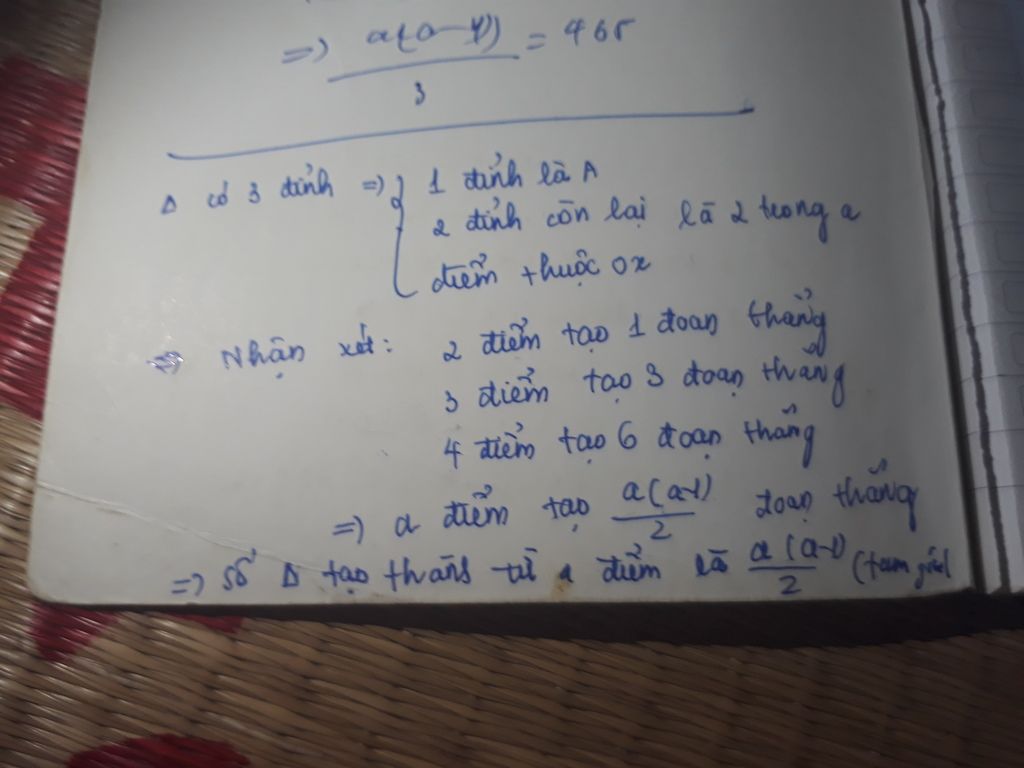 => a(a-1)/3 = 465
Δ có 3 đỉnh => { 1 đỉnh là A
2 đỉnh còn lại là 2 trong a
điểm thuộc Ox
=> Nhận xét: 2 điểm tạo 1 đoạn thẳng
3 điểm tạo 3 đoạn thẳng
4 điểm tạo 6 đoạn thẳng
=> a điểm tạo a(a-1)/2 đoạn thẳng
=> Số Δ tạo thành từ a điểm là a(a-1)/2 (tam giác